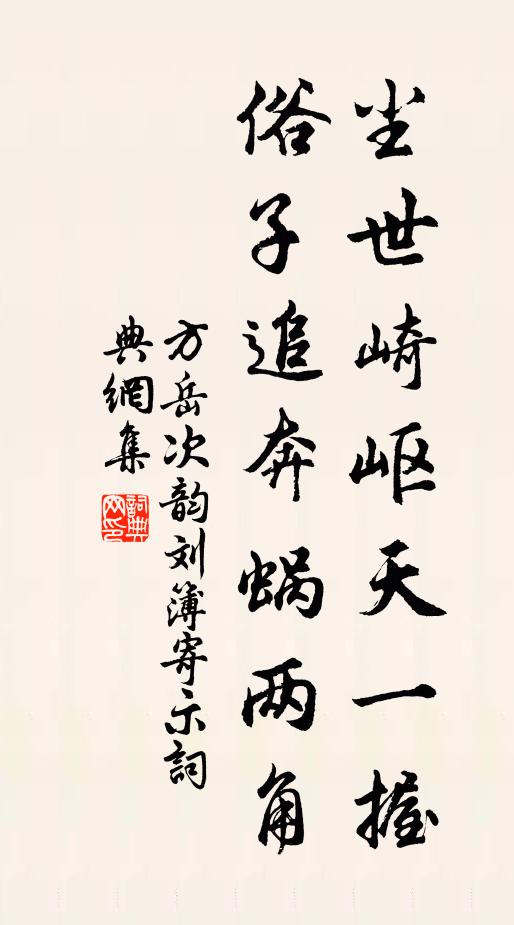 尘世崎岖天一握
俗子追奔蜗两角
方岳次韵刘簿寄示词
典網集
詞典網印